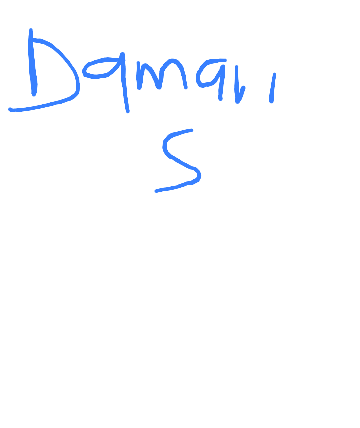 Damari
S